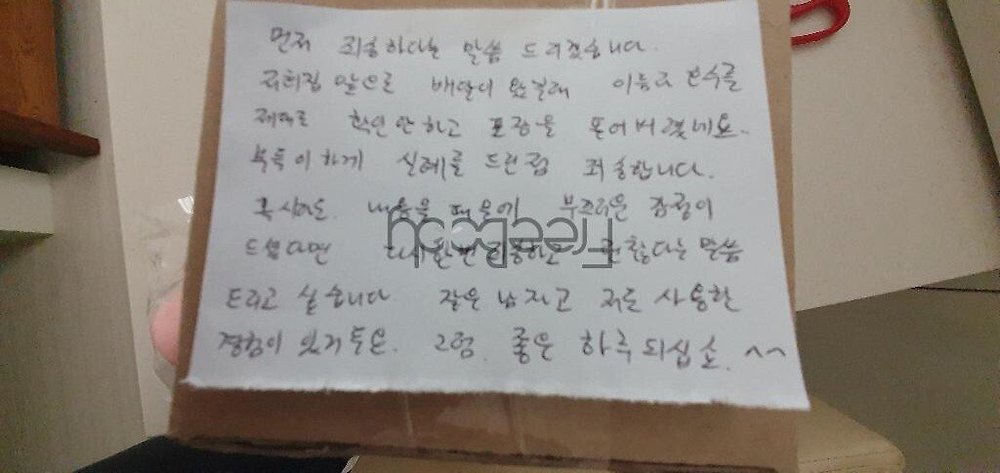 먼저 죄송하다는 말씀 드리겠습니다.
저희집 앞으로 배달이 왔길래 이름과 번지를
제대로 확인 안하고 포장을 뜯어버렸네요.
부득이하게 실례를 드린점 죄송합니다.
혹시라도 내용물 때문에 부끄러운 감정이
드셨다면 다시한번 죄송하고 괜찮다는 말씀
드리고 싶습니다 젊은 남자고 저도 사용한
경험이 있거든요. 그럼. 좋은 하루 되십쇼. ^^
Freebooh